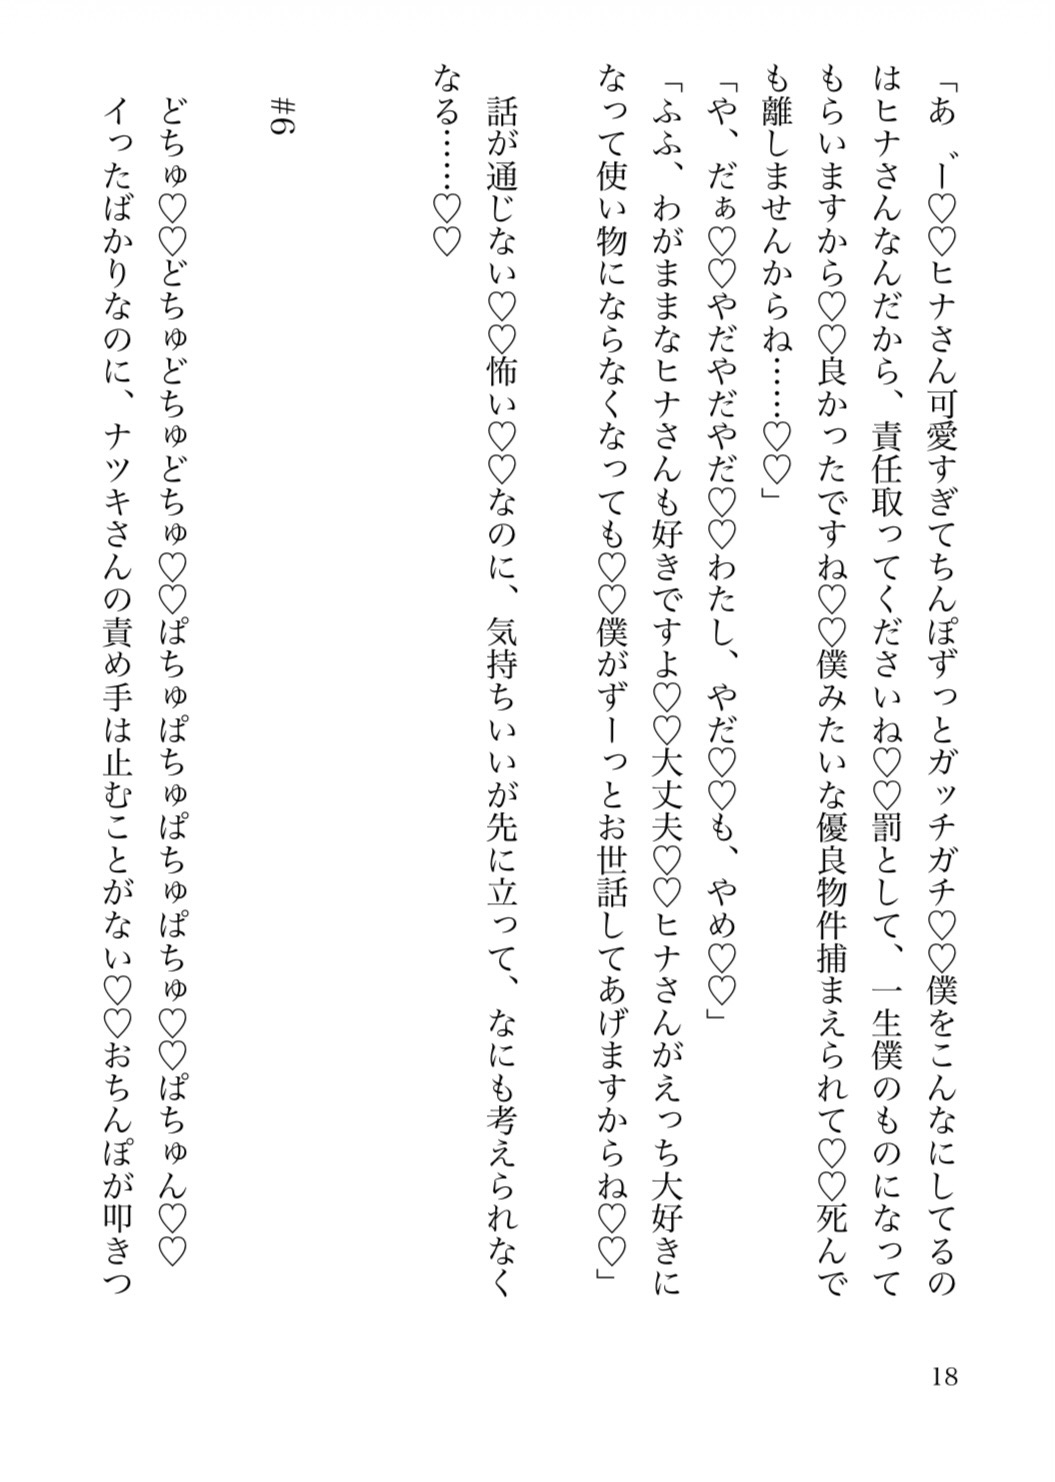 「あ゛ー♡♡ヒナさん可愛すぎてちんぽずっとガッチガチ♡♡僕をこんなにしてるの
はヒナさんなんだから、責任取ってくださいね♡♡罰として、一生僕のものになって
もらいますから♡♡良かったですね♡♡僕みたいな優良物件捕まえられて♡♡死んで
も離しませんからね……♡♡」
「や、だぁ♡♡やだやだやだ♡♡わたし、やだ♡♡も、やめ♡♡」
「ふふ、わがままなヒナさんも好きですよ♡♡大丈夫♡♡ヒナさんがえっち大好きに
なって使い物にならなくなっても♡♡僕がずーっとお世話してあげますからね♡♡」
話が通じない♡♡怖い♡♡なのに、気持ちいいが先に立って、なにも考えられなく
なる……♡♡
#6
どちゅ♡♡どちゅどちゅどちゅ♡♡ぱちゅぱちゅぱちゅぱちゅ♡♡ぱちゅん♡♡
イったばかりなのに、ナツキさんの責め手は止むことがない♡♡おちんぽが叩きつ
18